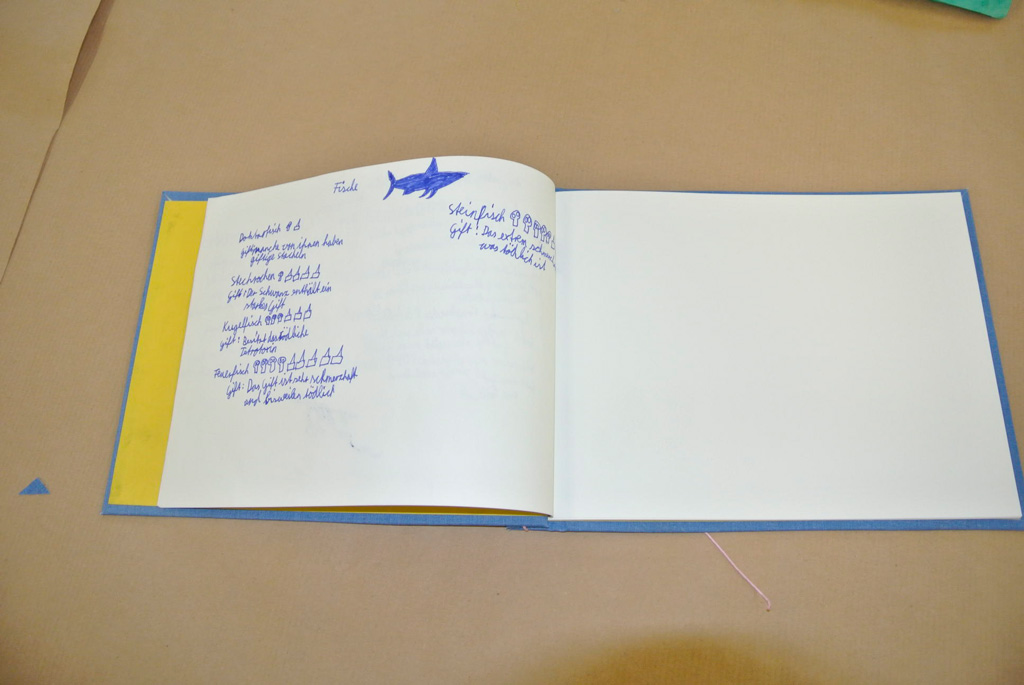 Fische
Doktorfisch
manche von ihnen haben
giftige Stacheln
Stechrochen
Gift: Der Schwanz enthält ein
starkes Gift
Kugelfisch
Gift: Besitzt das tödliche
Feuerfisch
Gift: Das Gift ist sehr schmerzhaft
und bisweilen tödlich
Steinfisch
Gift: Das extrem
was tödlich ist